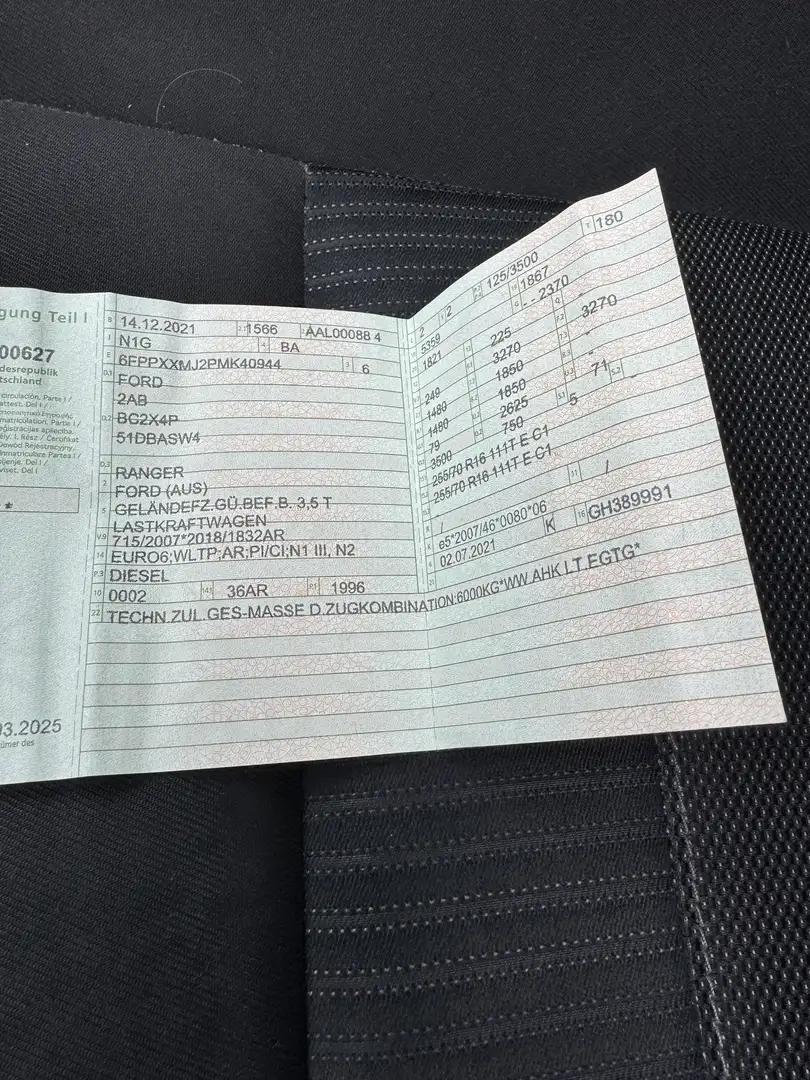 gung Teil I
00627
desrepublik
tschland
03.2025
B 14.12.2021 2.1 1566 AAL00088 4
J N1G 4 BA
E 6FPPXXMJ2PMK40944 3 6
D.1 FORD
2AB
D.2 BC2X4P
51DBASW4
D.3 RANGER
2 FORD (AUS)
5 GELÄNDEFZ.GÜ.BEF.B. 3,5 T
LASTKRAFTWAGEN
V.9 715/2007*2018/1832AR
14 EURO6;WLTP;AR;PI/CI;N1 III, N2
P.3 DIESEL
10 0002 14.1 36AR P.1 1996
22 TECHN.ZUL.GES-MASSE D.ZUGKOMBINATION:6000KG*WW.AHK LT.EGTG*
2 2 125/3500 T 180
5359 1867
1821 G - - 2370
249 225
1480 3270 3270
1480 1850 -
79 1850 -
3500 2625 71 -
750 5
255/70 R16 111T E C1
255/70 R16 111T E C1
/ /
K e5*2007/46*0080*06
6 02.07.2021 K 16 GH389991